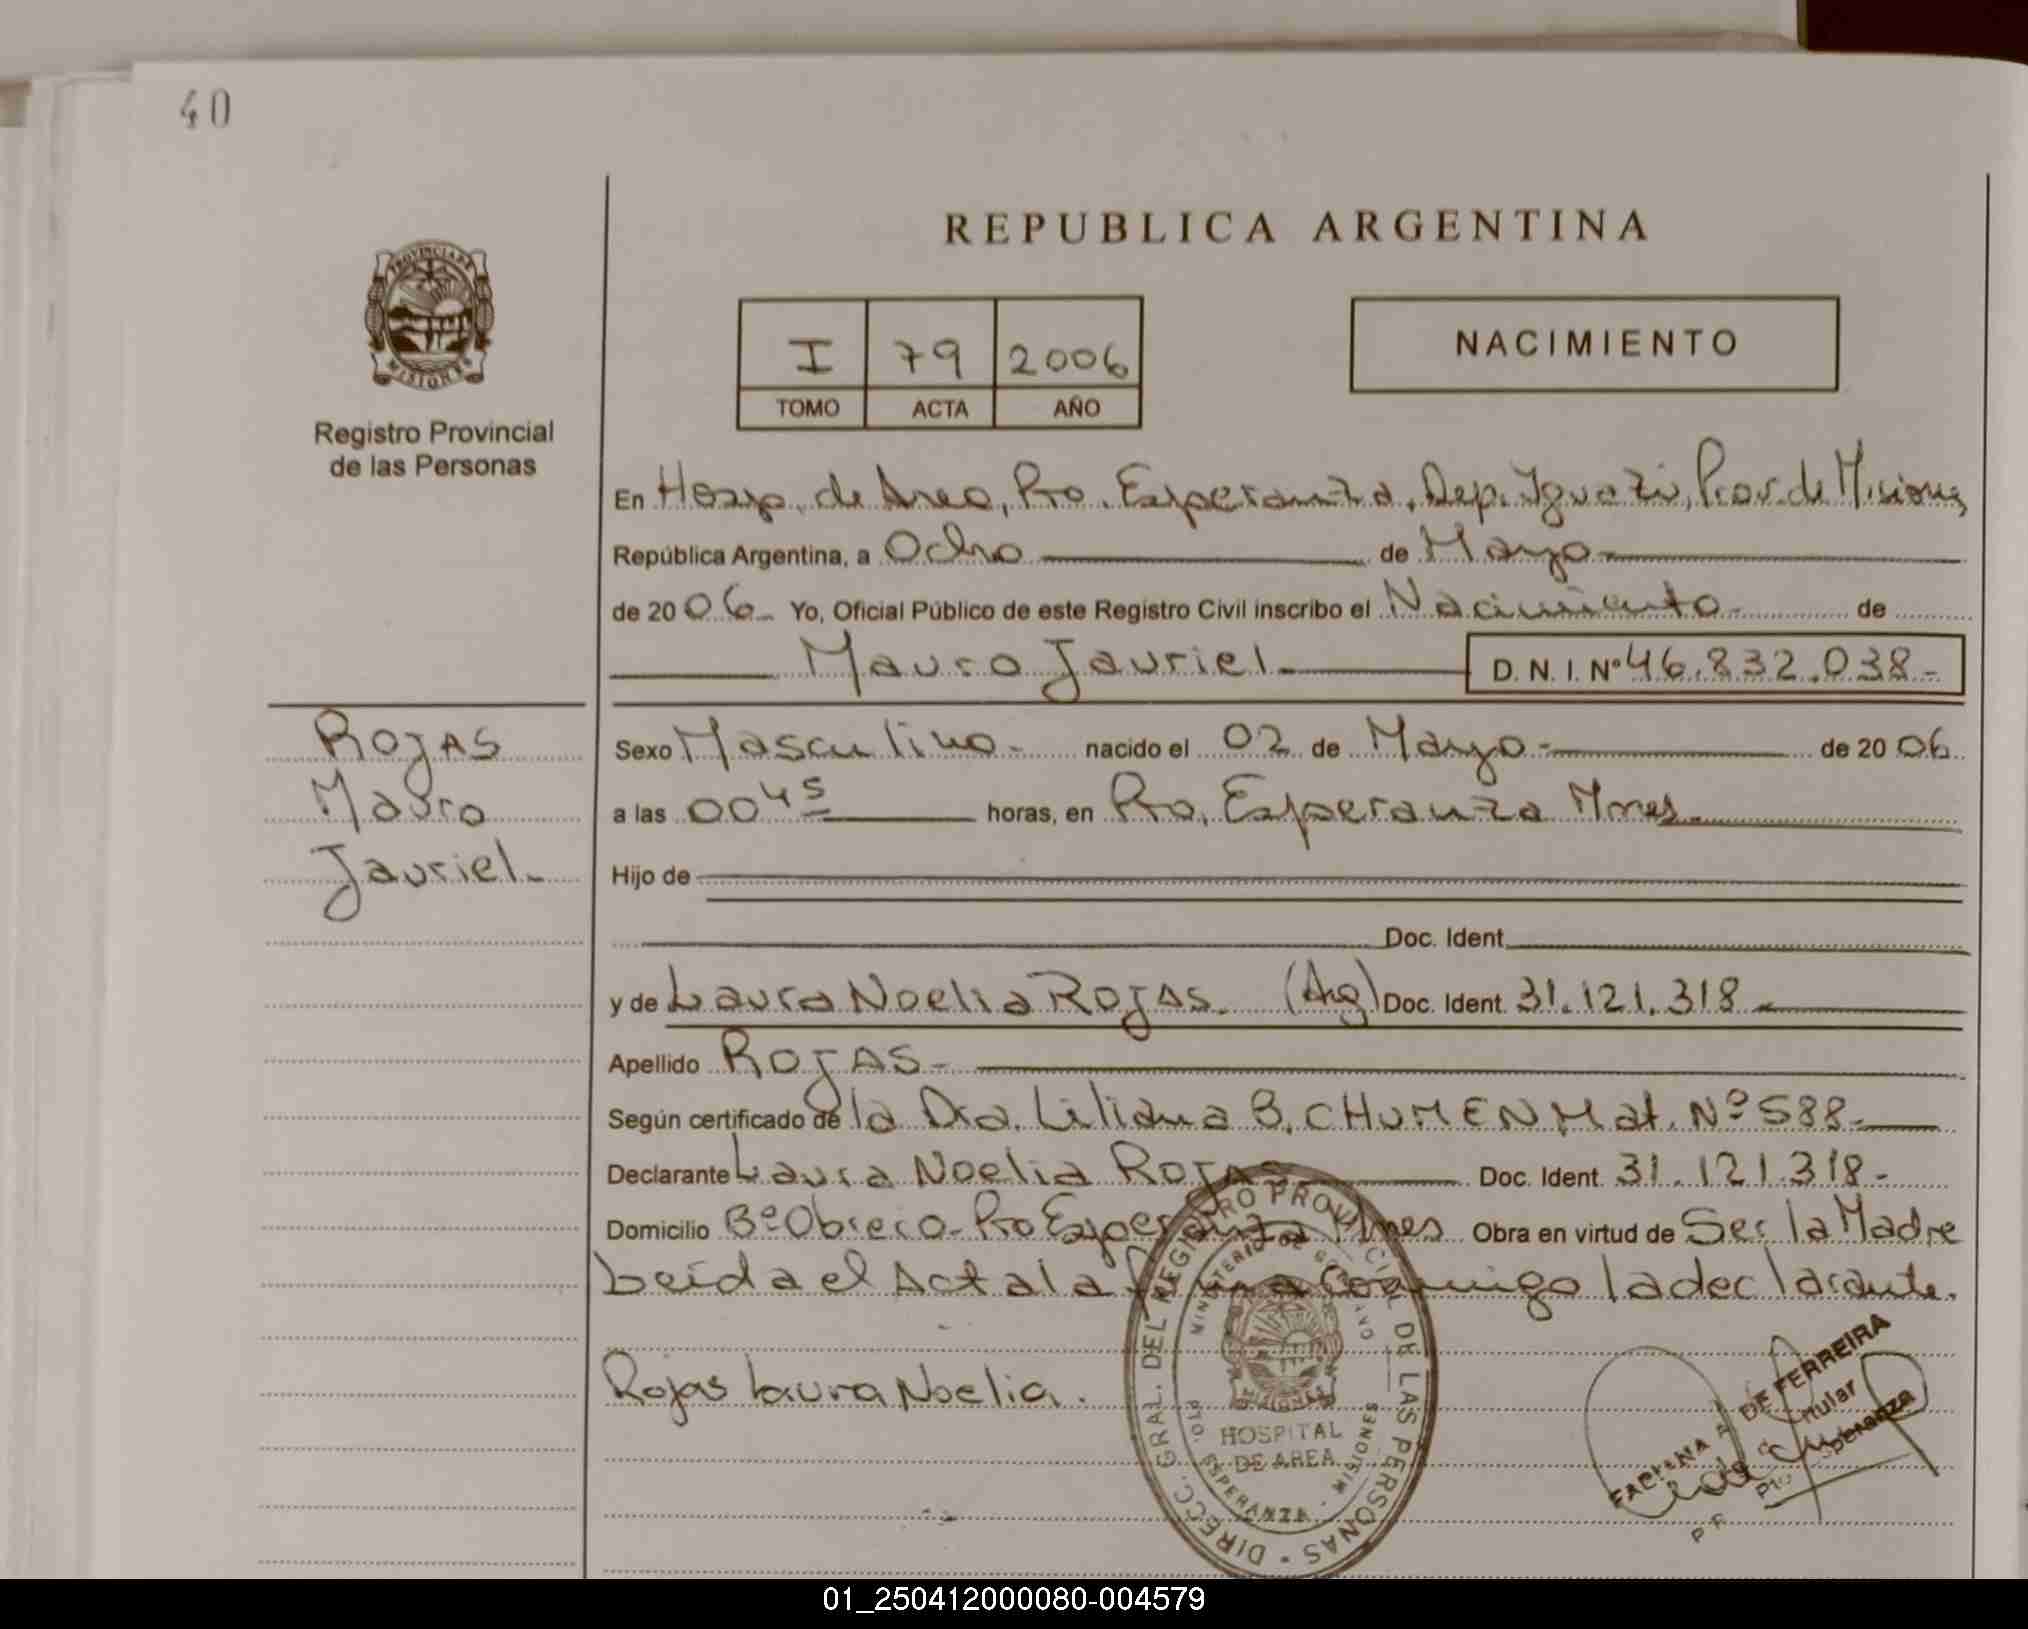 40
REPUBLICA ARGENTINA
PROVINCIA DE
MISIONES
Registro Provincial
de las Personas
I 79 2006
TOMO ACTA AÑO
NACIMIENTO
En Hosp. de Area, Pto. Esperanza, Dep. Iguazú, Prov. de Misiones,
República Argentina, a Ocho de Mayo
de 2006- Yo, Oficial Público de este Registro Civil inscribo el Nacimiento- de
Mauro Jauriel- D. N. I. Nº 46.832.038-
ROJAS
Mauro
Jauriel-
Sexo Masculino- nacido el 02 de Mayo- de 2006
a las 00 45 horas, en Pto. Esperanza Mnes-
Hijo de
Doc. Ident.
y de Laura Noelia ROJAS- (Arg) Doc. Ident. 31.121.318-
Apellido ROJAS-
Según certificado de la Dra. Liliana B. CHUMEN Mat. Nº 588-
Declarante Laura Noelia ROJAS Doc. Ident. 31.121.318-
Domicilio Bº Obrero- Pto Esperanza Mnes Obra en virtud de Ser la Madre
Leída el Acta la firma Conmigo la declarante.
Rojas Laura Noelia.
DIRECC. GRAL. DEL REGISTRO PROVINCIAL DE LAS PERSONAS
MINISTERIO DE GOBIERNO
HOSPITAL
DE AREA
PTO. ESPERANZA - MISIONES
DE FERREIRA
Titular
Pto. Esperanza
01_250412000080-004579